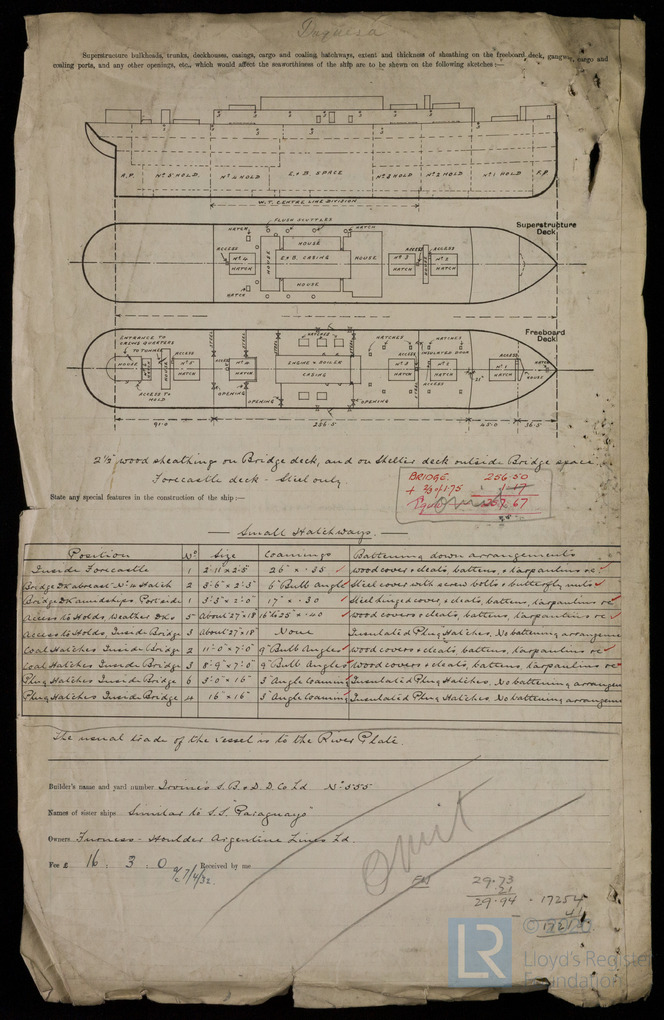 Duquesa
Superstructure bulkheads, trunks, deckhouses, casings, cargo and coaling hatchways, extent and thickness of sheathing on the freeboard deck, gangway, cargo and
coaling ports, and any other openings, etc., which would affect the seaworthiness of the ship are to be shewn on the following sketches:—
A.P. Nº 5 HOLD Nº 4 HOLD E & B. SPACE Nº 3 HOLD Nº 2 HOLD Nº 1 HOLD F.P.
W.T. CENTRE LINE DIVISION
FLUSH SCUTTLES
HATCH HATCH
Superstructure
Deck
ACCESS HOUSE ACCESS ACCESS
Nº 4 HATCH HOUSE E & B. CASING HOUSE Nº 3 HATCH HOUSE Nº 2 HATCH
HOUSE
HATCH
Freeboard
Deck
ENTRANCE TO
CREWS QUARTERS
TO TUNNEL
ACCESS
HATCHES
HATCHES
HATCHES
ACCESS
INSULATED DOOR
ACCESS
HATCH
HOUSE
HOUSE
Nº 5
HATCH
Nº 4
HATCH
ENGINE & BOILER
CASING
Nº 3
HATCH
HATCH
Nº 1
HATCH
HOUSE
ACCESS TO
HOLD
OPENING
OPENING
OPENING
ACCESS
91.0 256.5 45.0 36.5
2½" wood sheathing on Bridge deck, and on Shelter deck outside Bridge space.
Forecastle deck - Steel only.
BRIDGE. 256.50
+ ⅔ of 1.75 1.17
257.67
State any special features in the construction of the ship:—
Small Hatchways.
Position Nº Size Coamings Battening down arrangements
Inside Forecastle 1 2'-11" x 2'-5" 26" x .35 wood covers & cleats, battens, & tarpaulins
Bridge Dk abreast Nº 4 Hatch 2 3'-6" x 2'-5" 6" Bulb Angle Steel cover with screw bolts & butterfly nuts
Bridge Dk amidships Port side 1 3'-3" x 2'-0" 17" x .30 Steel hinged cover & cleats, battens, tarpaulins
Access to Holds, Weather Dks 5 about 27" x 18" 16" to 25" x .40 wood covers & cleats, battens, tarpaulins
Access to Holds, Inside Bridge 3 about 27" x 18" None Insulated Plug Hatches, No battening arrangeme
Coal Hatches Inside Bridge 2 11'-0" x 7'-0" 9" Bulb Angles wood covers & cleats, battens, tarpaulins
Coal Hatches Inside Bridge 3 8'-9" x 7'-0" 9" Bulb Angles wood covers & cleats, battens, tarpaulins
Plug Hatches Inside Bridge 6 3'-0" x 16" 3" Angle Coaming Insulated Plug Hatches. No battening arrangem
Plug Hatches Inside Bridge 4 16" x 16" 3" Angle Coaming Insulated Plug Hatches. No battening arrangem
The usual trade of the vessel is to the River Plate.
Builder's name and yard number Irvine's S.B. & D.D. Co. Ld Nº 555
Names of sister ships Similar to S.S. "Paraguayo"
Owners Furness - Houlder Argentine Lines Ld.
Fee £ 16 : 3 : 0 Received by me
7/4/32.
Omit
29.73
.21
29.94
17254
© 
LR
Lloyd's Register
Foundation